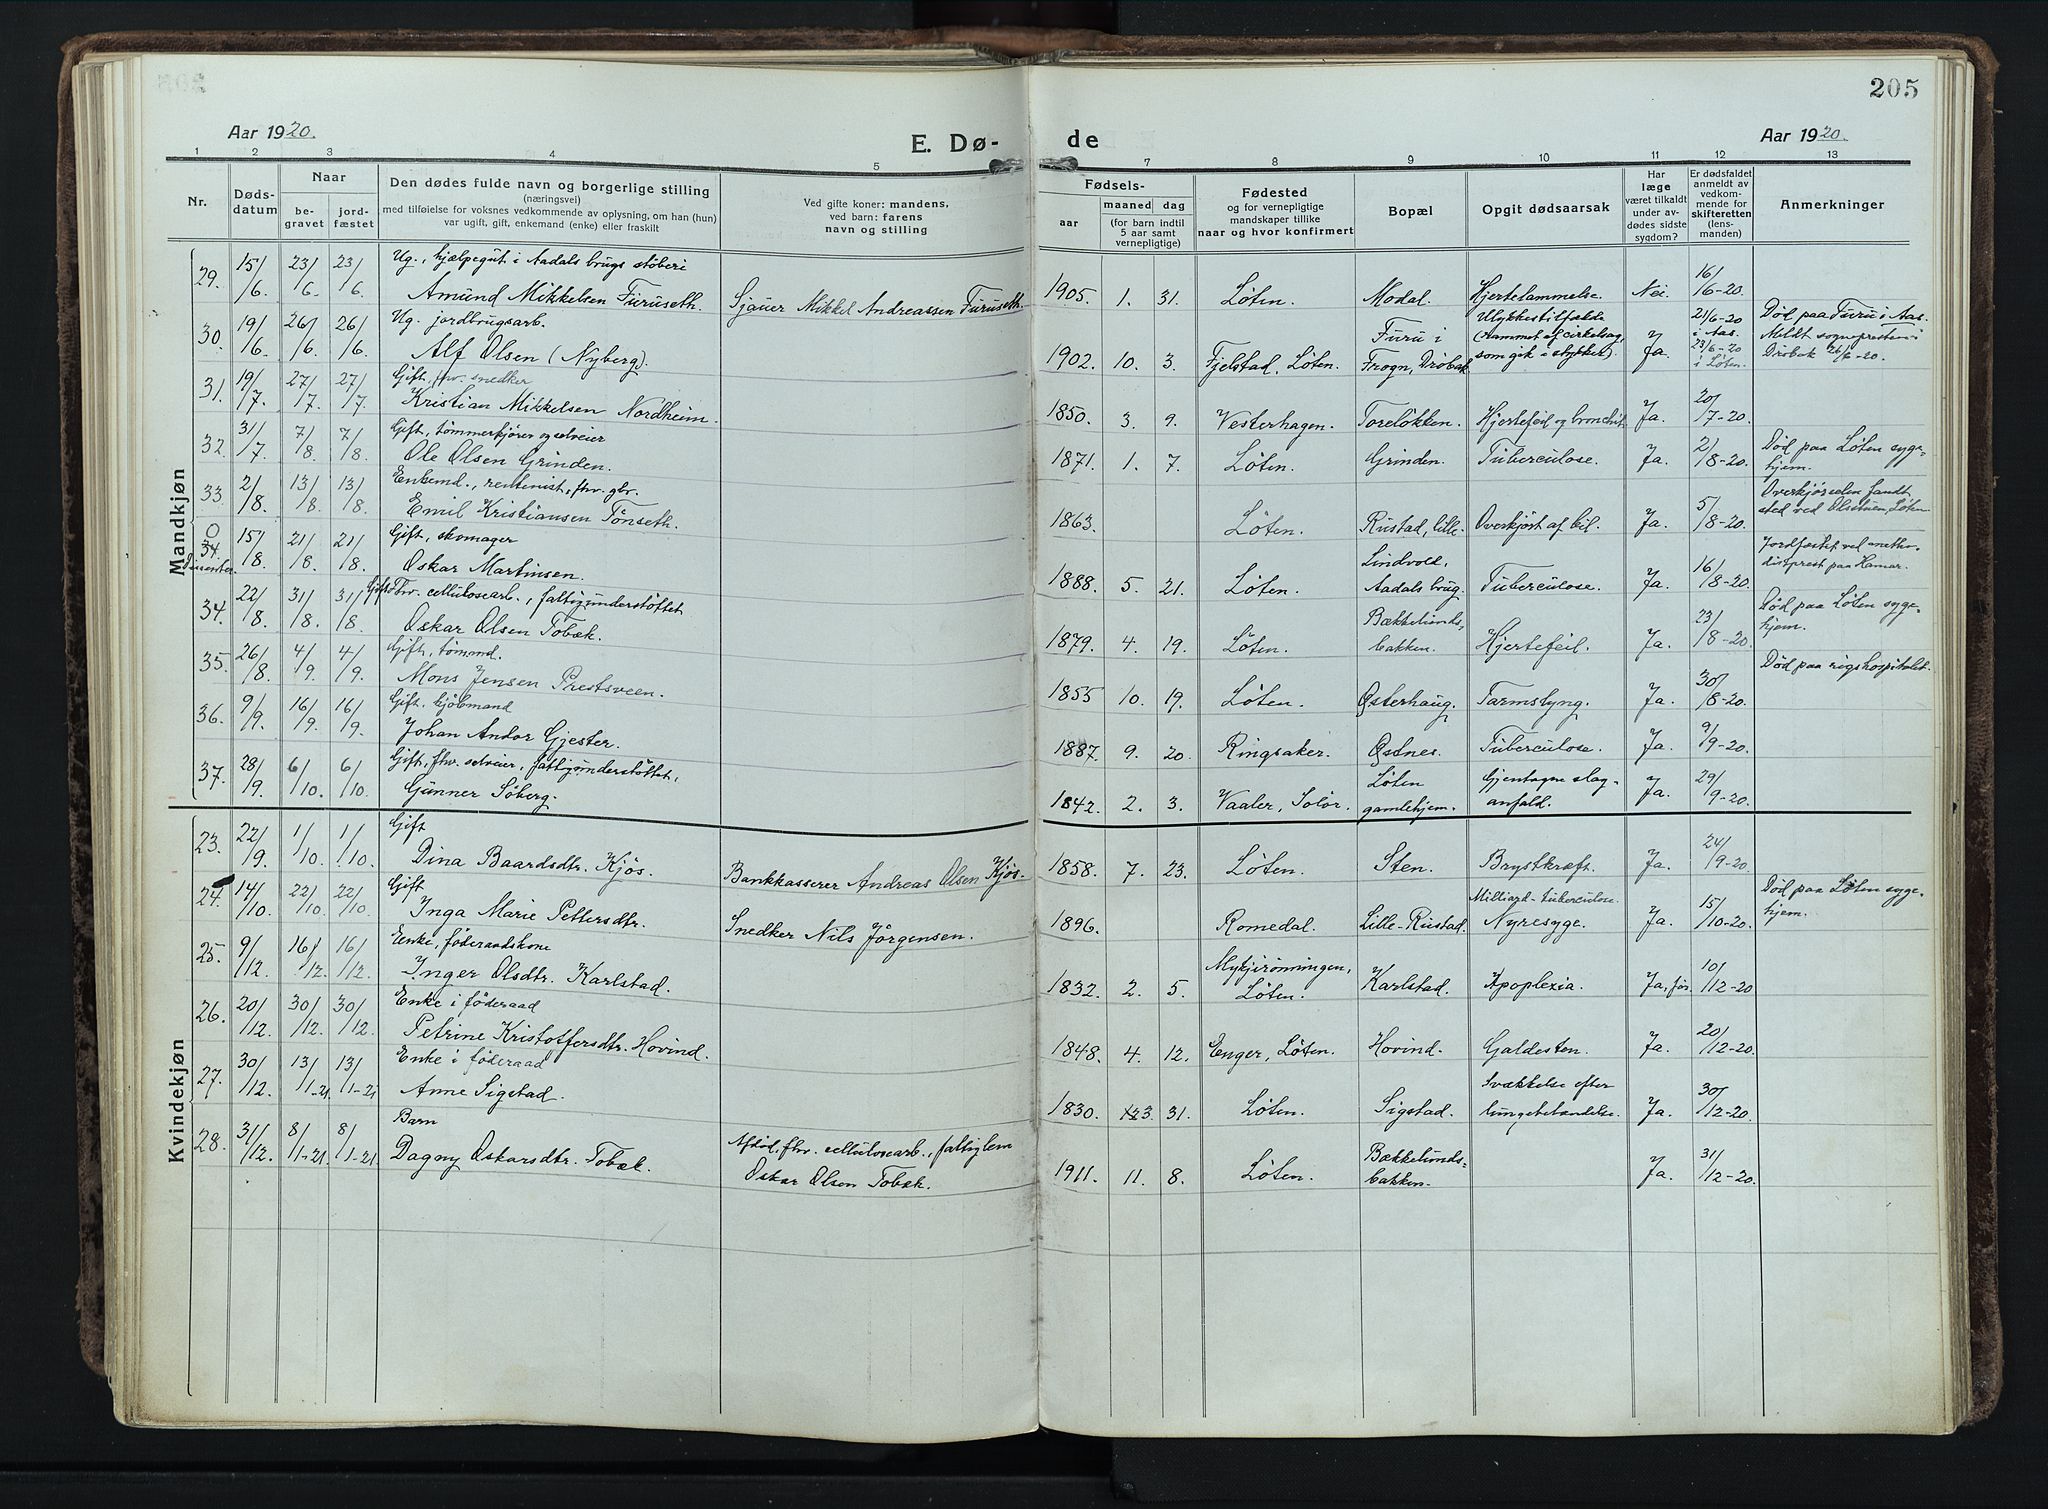 205
Aar 1920.
E. Dø-
de
Aar 1920.
1 2 3 4 5 7 8 9 10 11 12 13
Nr.
Døds-
datum
Naar
be-
gravet
jord-
fæstet
Den dødes fulde navn og borgerlige stilling
(næringsvei)
med tilføielse for voksnes vedkommende av oplysning, om han (hun)
var ugift, gift, enkemand (enke) eller fraskilt
Ved gifte koner: mandens,
ved barn: farens
navn og stilling
Fødsels-
aar
maaned dag
(for barn indtil
5 aar samt
vernepligtige)
Fødested
og for vernepligtige
mandskaper tillike
naar og hvor konfirmert
Bopæl
Opgit dødsaarsak
Har
læge
været tilkaldt
under av-
dødes sidste
sygdom?
Er dødsfaldet
anmeldt av
vedkom-
mende for
skifteretten
(lens-
manden)
Anmerkninger
Mandkjøn
29. 15/6. 23/6. 23/6. Ug., hjælpegut i Aadals brugs støberi
Amund Mikkelsen Furuseth. Sjauer Mikkel Andreassen Furuseth.
1905. 1. 31. Løten. Modal. Hjertelammelse. Nei. 16/6-20.
30. 19/6. 26/6. 26/6. Ug. jordbrugsarb.
Alf Olsen (Nyberg).
1902. 10. 3. Fjelstad, Løten. Furu i
Frogn, Drøbak
Ulykkestilfælde
(rammet af cirkelsag,
som gik i stykker).
Ja. 21/6-20
i Aas.
23/6-20
i Løten.
Død paa Furu i Aas.
Meldt sognepresten i
Drøbak 26/6-20.
31. 19/7. 27/7. 27/7. Gift, fhv. snedker
Kristian Mikkelsen Nordheim.
1850. 3. 9. Vesterhagen. Toreløkken. Hjertefeil og bronchit. Ja. 20/7-20.
32. 31/7. 7/8. 7/8. Gift, tømmerkjører og selveier
Ole Olsen Grinden.
1871. 1. 7. Løten. Grinden. Tuberculose. Ja. 2/8-20. Død paa Løten syge-
hjem.
33. 2/8. 13/8. 13/8. Enkemd., rentenist, fhv. gbr.
Emil Kristiansen Tønseth.
1863. Løten. Rustad, lille. Overkjørt af bil. Ja. 5/8-20. Overkjørselen fandt
sted ved Olsetuen, Løten
0
34. 15/8. 21/8. 21/8. Gift, skomager
Dissenter. Oskar Martinsen.
1888. 5. 21. Løten. Lindvold,
Aadals brug. Tuberculose. Ja. 16/8-20. Jordfæstet ved metho-
distprest paa Hamar.
34. 22/8. 31/8. 31/8. Gift. Fhv. cellulosearb., fattigunderstøttet
Oskar Olsen Tobæk.
1879. 4. 19. Løten. Bækkelunds-
bakken. Hjertefeil. Ja. 23/8-20. Død paa Løten syge-
hjem.
35. 26/8. 4/9. 4/9. Gift, tømmd.
Mons Jensen Prestsveen.
1855 10. 19. Løten. Østerhaug. Tarmslyng. Ja. 30/8-20. Død paa rigshospitalet.
36. 9/9. 16/9. 16/9. Gift, kjøbmand
Johan Andor Gjester.
1887. 9. 20. Ringsaker. Østnes. Tuberculose. Ja. 9/9-20.
37. 28/9. 6/10. 6/10. Gift, fhv. selveier, fattigunderstøttet,
Gunner Søberg.
1842. 2. 3. Vaaler, Solør. Løten
gamlehjem. Gjentagne slag-
anfald. Ja. 29/9-20.
Kvindekjøn
23. 22/9. 1/10. 1/10. Gift
Dina Baardsdtr. Kjøs. Bankkasserer Andreas Olsen Kjøs.
1858. 7. 23. Løten. Sten. Brystkræft. Ja. 24/9-20.
24. 14/10. 22/10. 22/10. Gift
Inga Marie Pettersdtr. Snedker Nils Jørgensen.
1896. Romedal. Lille-Rustad. Milliard-tuberculose.
Nyresyge. Ja. 15/10-20. Død paa Løten syge-
hjem.
25. 9/12. 16/12. 16/12. Enke, føderaadskone
Inger Olsdtr. Karlstad.
1832. 2. 5. Mykjirønningen,
Løten. Karlstad. Apoplexia. Ja, før. 10/12-20.
26. 20/12. 30/12. 30/12. Enke i føderaad
Petrine Kristoffersdtr. Hovind.
1848. 4. 12. Enger, Løten. Hovind. Galdesten. Ja. 20/12-20.
27. 30/12. 13/1-21. 13/1-21. Enke i føderaad
Anne Sigstad.
1830. 3. 31. Løten. Sigstad. Svækkelse efter
lungebetændelse. Ja. 30/12-20.
28. 31/12. 8/1-21. 8/1-21. Barn
Dagny Oskarsdtr. Tobæk. Afdød, fhv. cellulosearb., fattiglem
Oskar Olsen Tobæk.
1911. 11. 8. Løten. Bækkelunds-
bakken. Ja. 31/12-20.